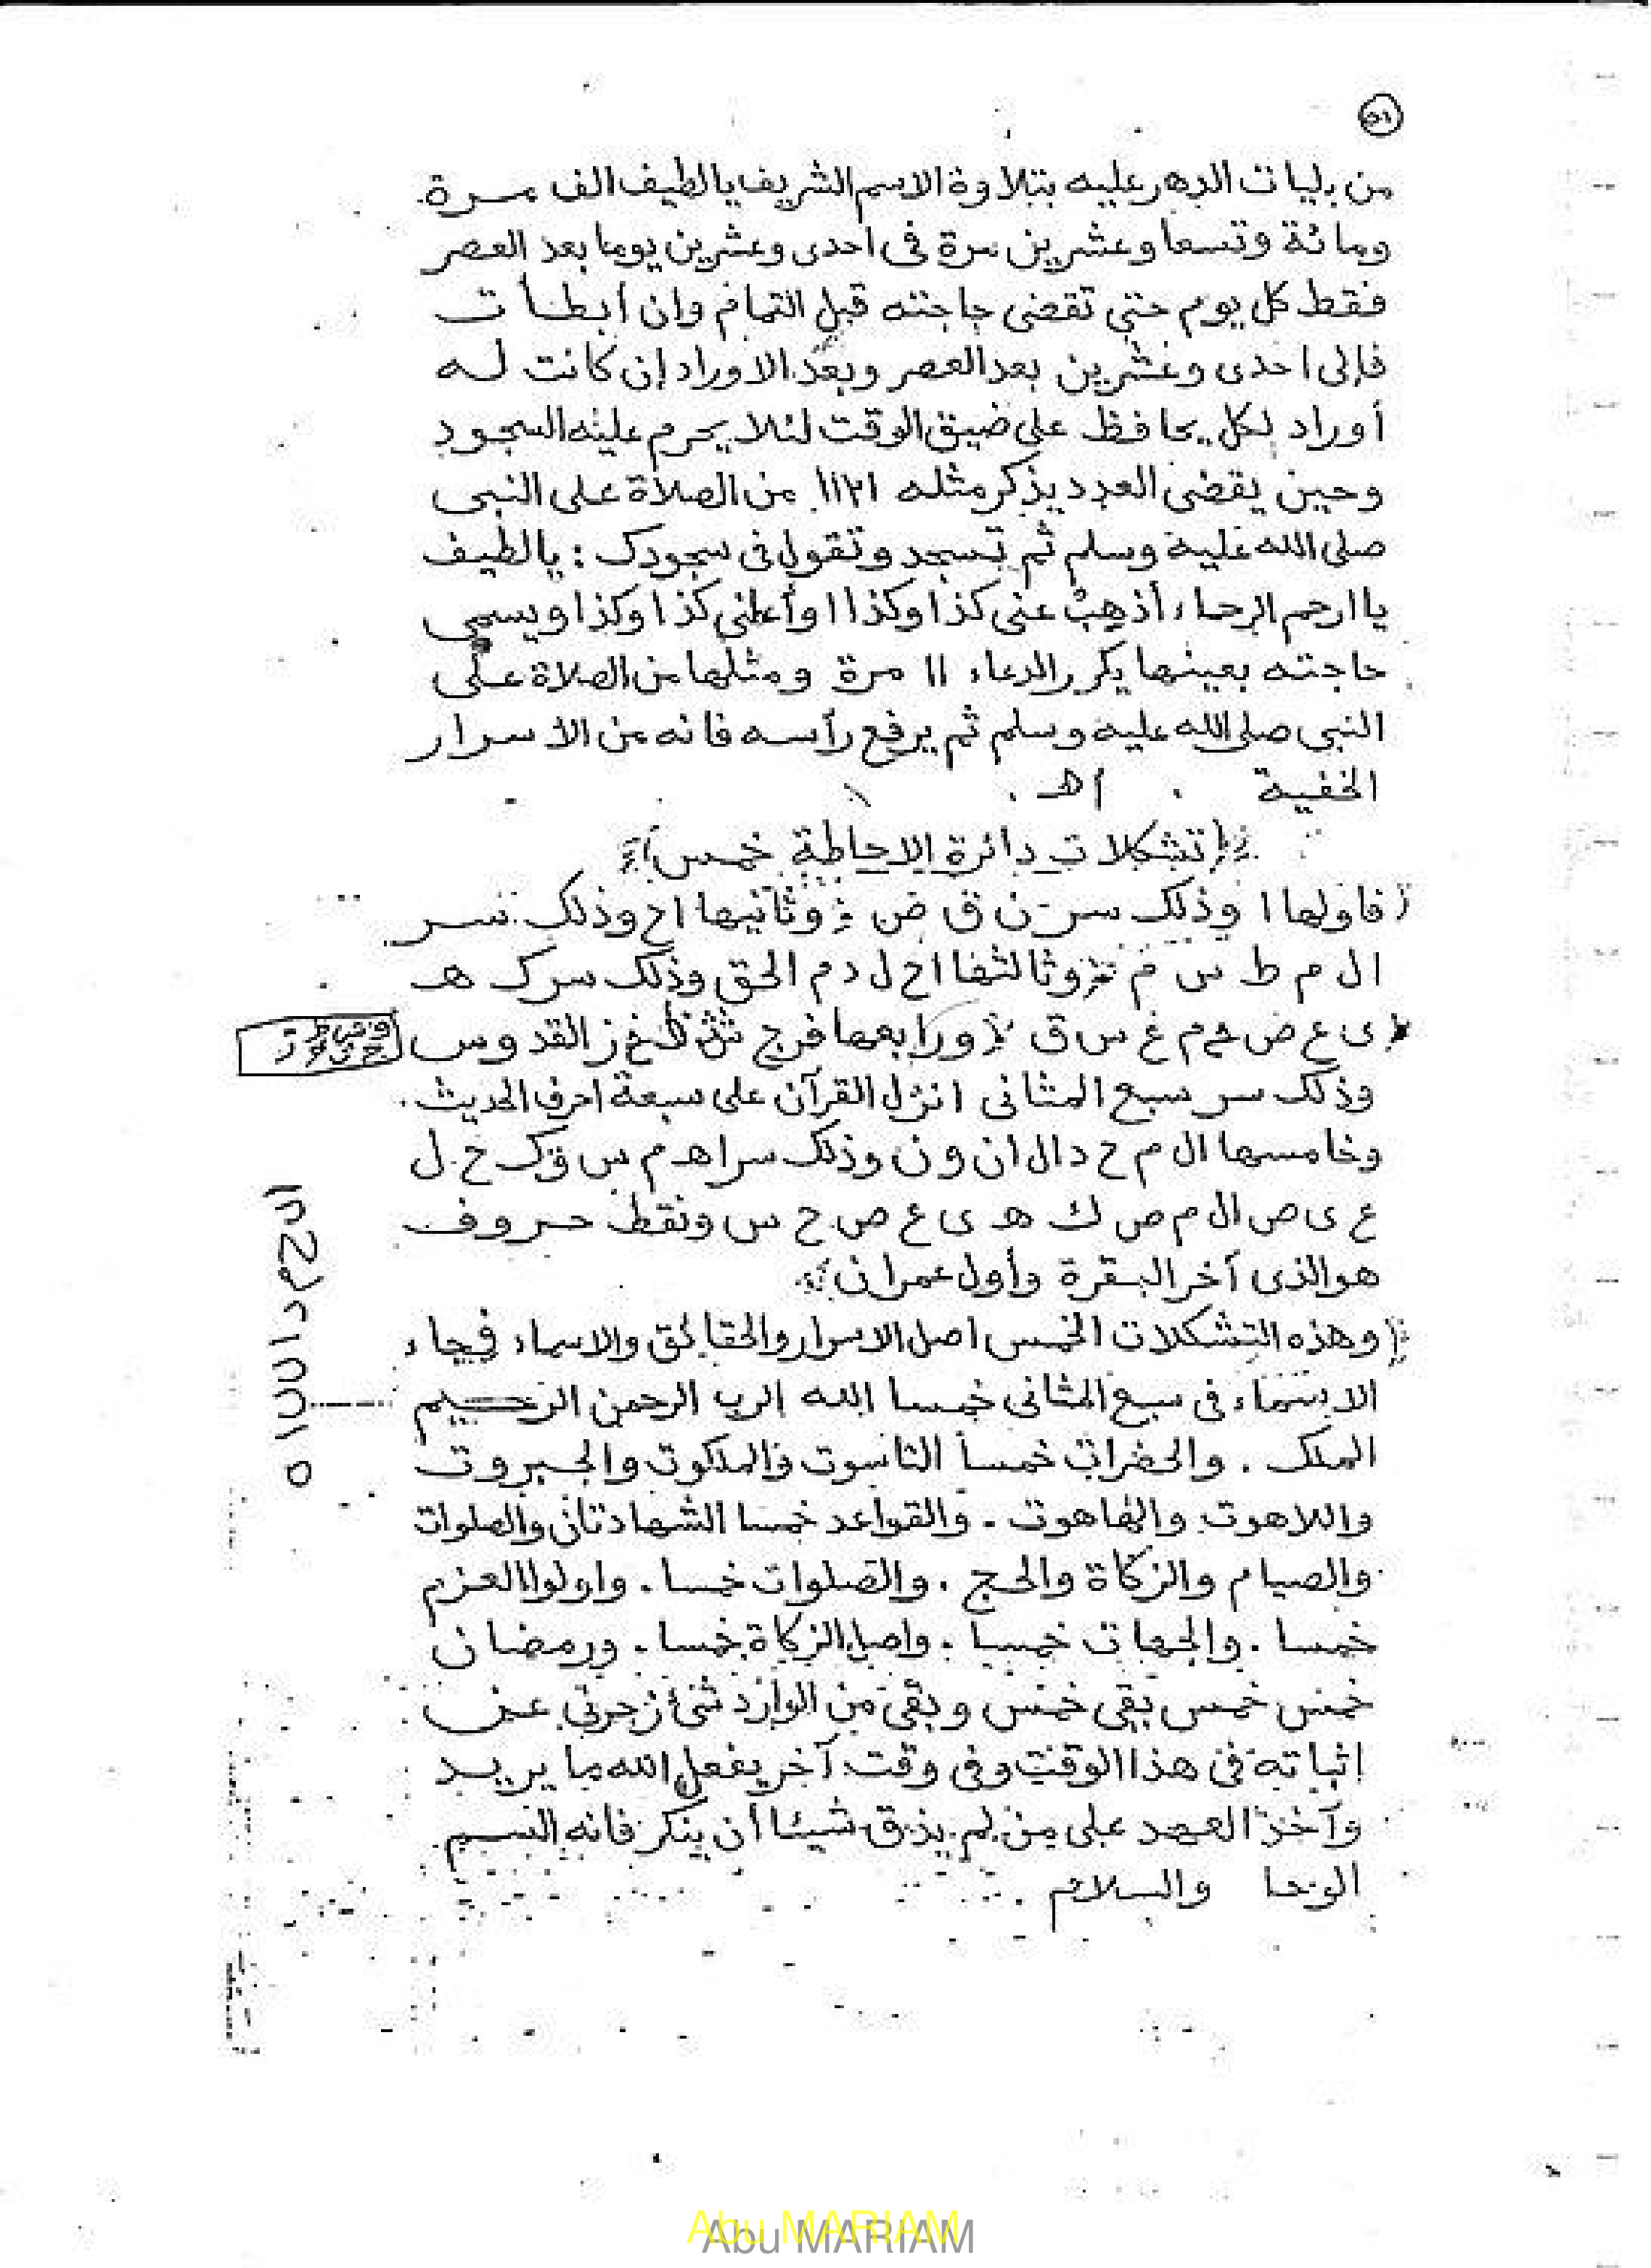 ٥١
من بليات الدهر عليه بتلاوة الاسم الشريف يا لطيف الف مرة
ومائة وتسعا وعشرين مرة فى احدى وعشرين يوما بعد العصر
فقط كل يوم حتى تقضى حاجته قبل التمام وان أبطأت
فإلى احدى وعشرين بعد العصر وبعد الاوراد إن كانت له
أوراد لكل يحافظ على ضيق الوقت لئلا يحرم عليه السجود
وحين يقضى العدد يذكر مثله من الصلاة على النبى
صلى الله عليه وسلم ثم تسجد وتقول فى سجودك : يا لطيف
يا ارحم الرحماء أذهب عنى كذا وكذا وأعطنى كذا وكذا ويسمى
حاجته بعينها يكرر الدعاء ١١ مرة ومثلها من الصلاة على
النبى صلى الله عليه وسلم ثم يرفع رأسه فانه من الاسرار
الخفية . اهـ .
(تشكلات دائرة الاحاطة خمس)
فاولها ا وذلك سر ن ق ض وثانيها اح وذلك سر
ال م ط س م وثالثها اح ل د م الحق وذلك سر ك هـ
ى ع ض حم م غ س ق ورابعها فرج القدوس
وذلك سر سبع المثانى انزل القرآن على سبعة احرف الحديث .
وخامسها ال م ح د ال ان و ن وذلك سر اهـ م س ق ك ح ل
ع ى ص ال م ص ك هـ ى ع ص ح س ونقط حروف
هو الذى آخر البقرة وأول عمران
(وهذه التشكلات الخمس اصل الاسرار والحقائق والاسماء فجاء
الاسماء فى سبع المثانى خمسا الله الرب الرحمن الرحيم
الملك . والحضرات خمسا الناسوت والملكوت والجبروت
واللاهوت والهاهوت . والقواعد خمسا الشهادتان والصلوات
والصيام والزكاة والحج . والصلوات خمسا . واولوا العزم
خمسا . والجهات خمسا . واصل الزكاة خمسا . ورمضان
خمس خمس بقى خمس وبقى من الوارد شئ زجرنى عن
إثباته فى هذا الوقت وفى وقت آخر يفعل الله ما يريد
وآخذ العهد على من لم يذق شيئا أن ينكر فانه السم
الوحا والسلام .
Abu MARIAM
Abu MARIAM